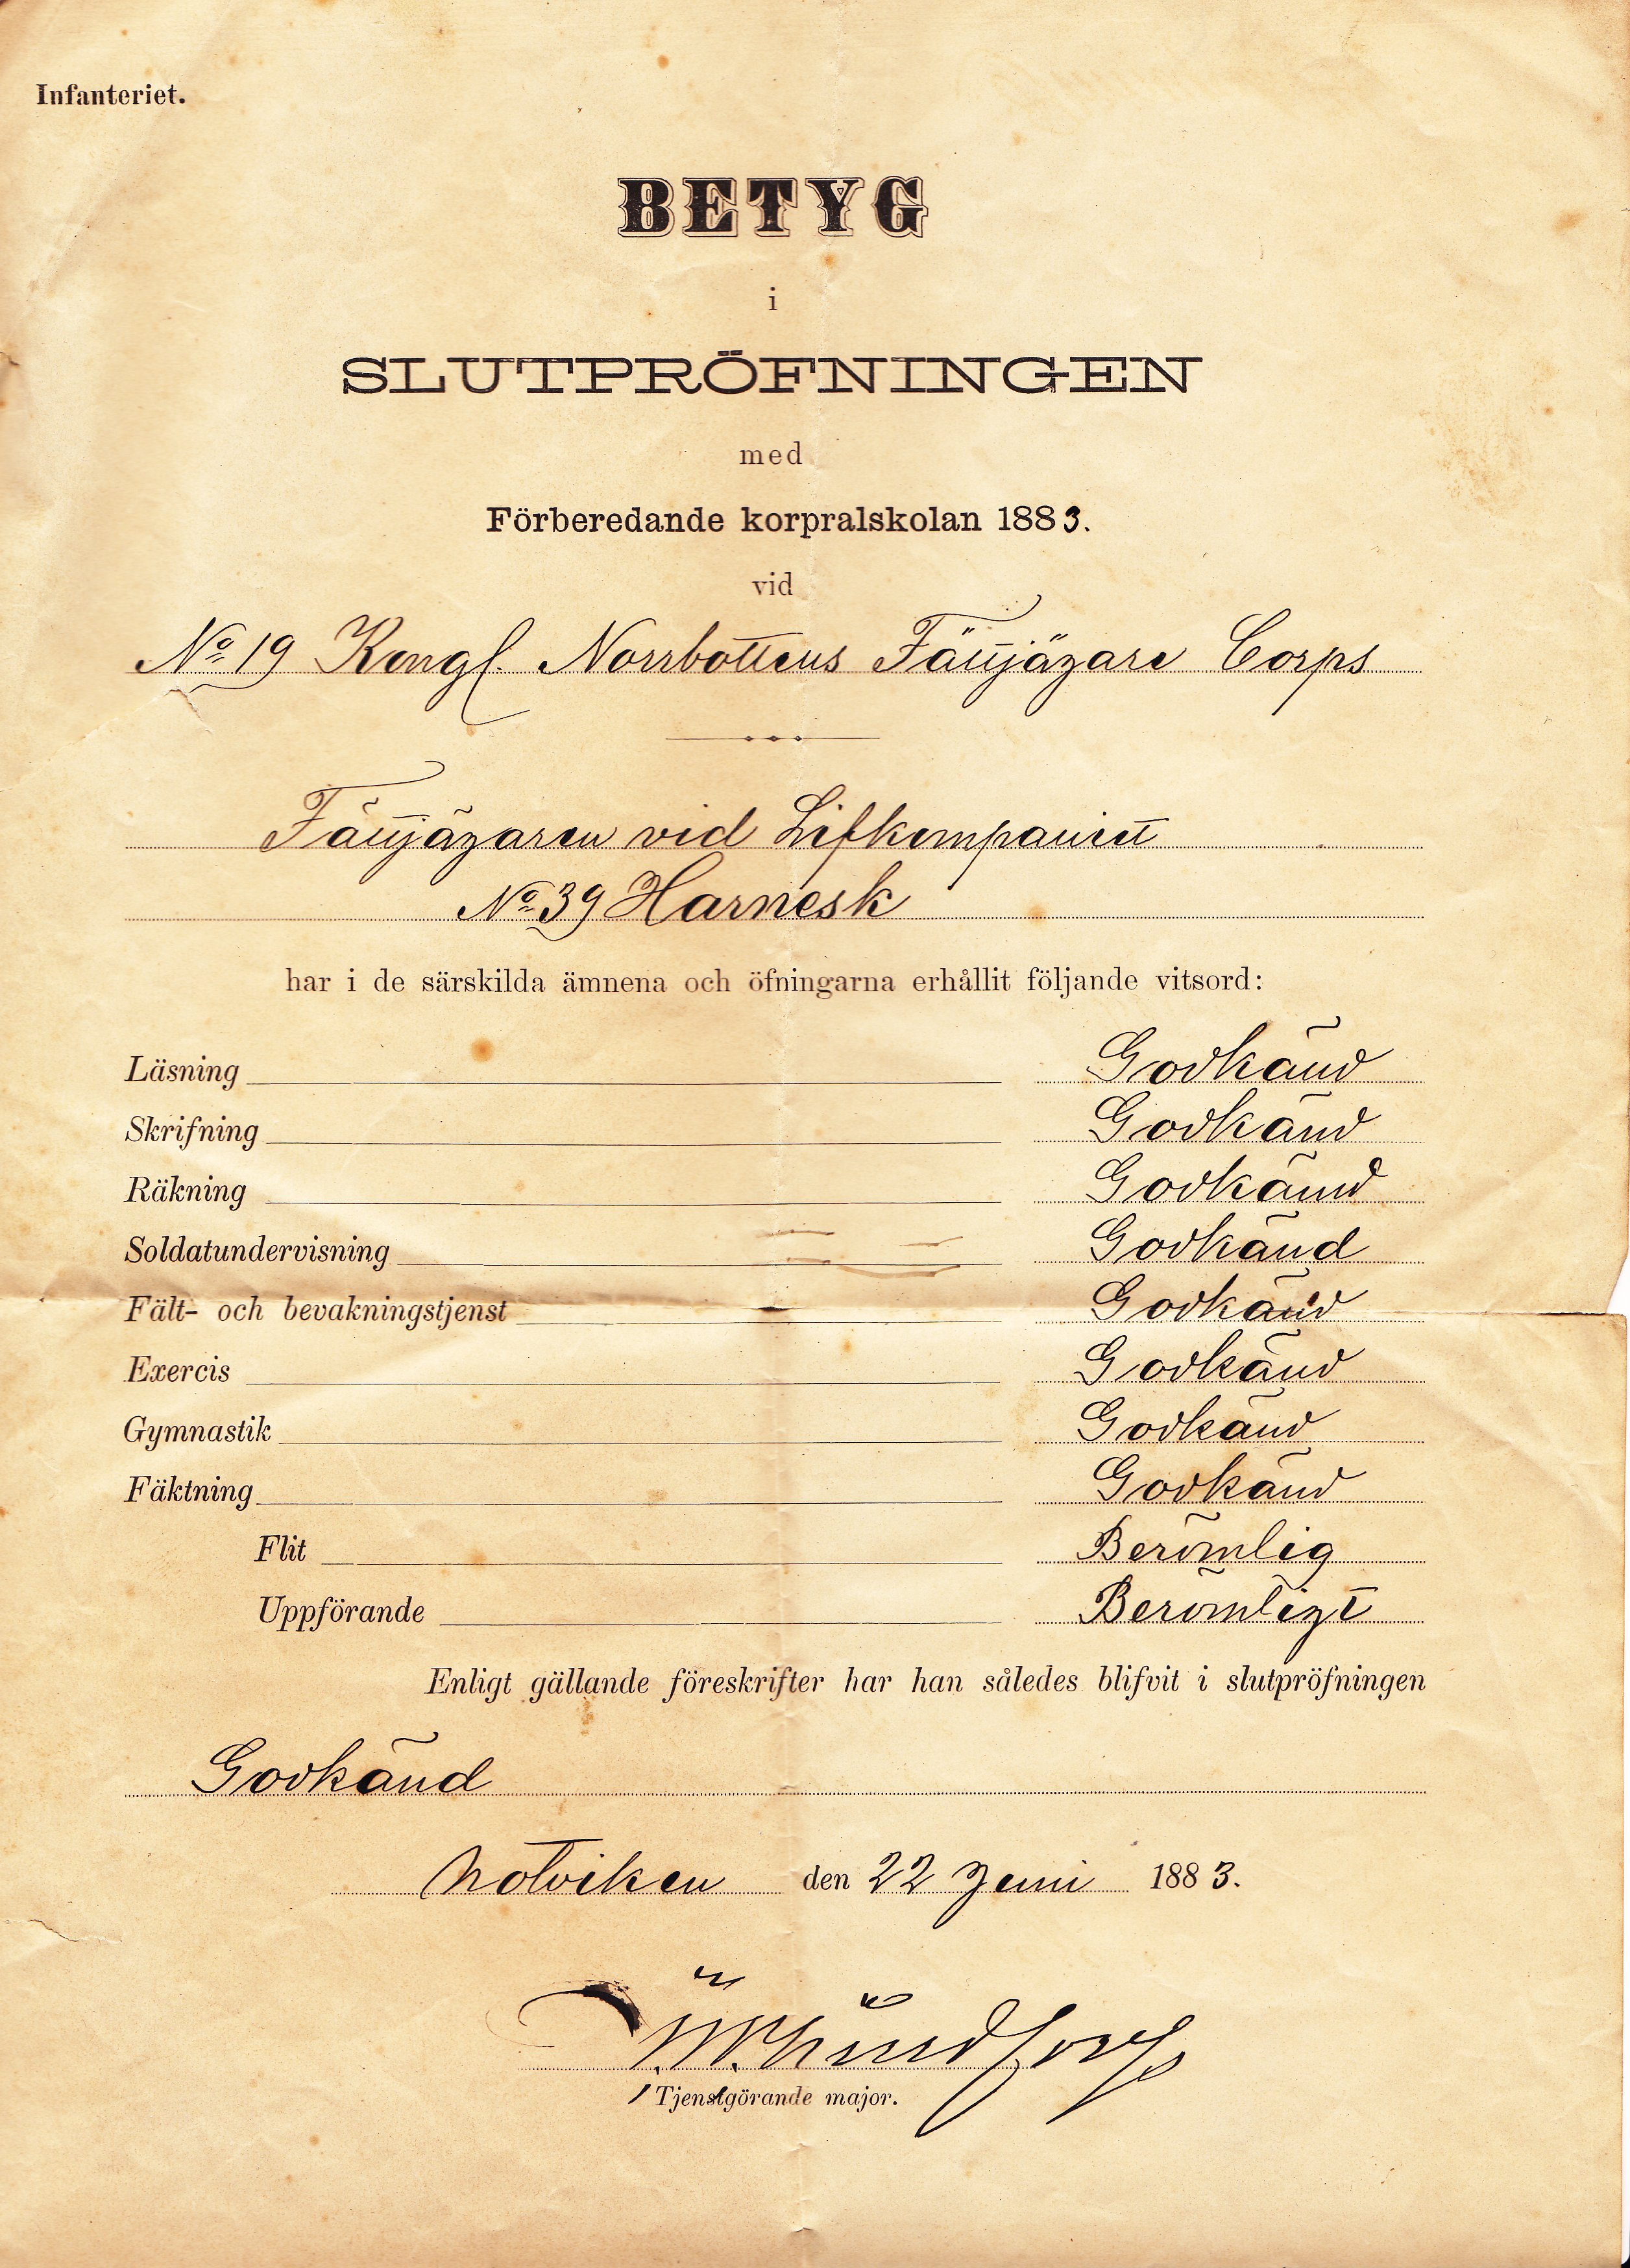 Infanteriet.
BETYG
i
SLUTPRÖFNINGEN
med
Förberedande korpralskolan 1883.
vid
No 19 Kongl. Norrbottens Fältjägare Corps
Fältjägaren vid Lifkompaniet
No 39 Harnesk
har i de särskilda ämnena och öfningarna erhållit följande vitsord:
Läsning Godkänd
Skrifning Godkänd
Räkning Godkänd
Soldatundervisning Godkänd
Fält- och bevakningstjenst Godkänd
Exercis Godkänd
Gymnastik Godkänd
Fäktning Godkänd
Flit Berömlig
Uppförande Berömligt
Enligt gällande föreskrifter har han således blifvit i slutpröfningen
Godkänd
Notviken den 22 Juni 1883.
Tjenstgörande major.